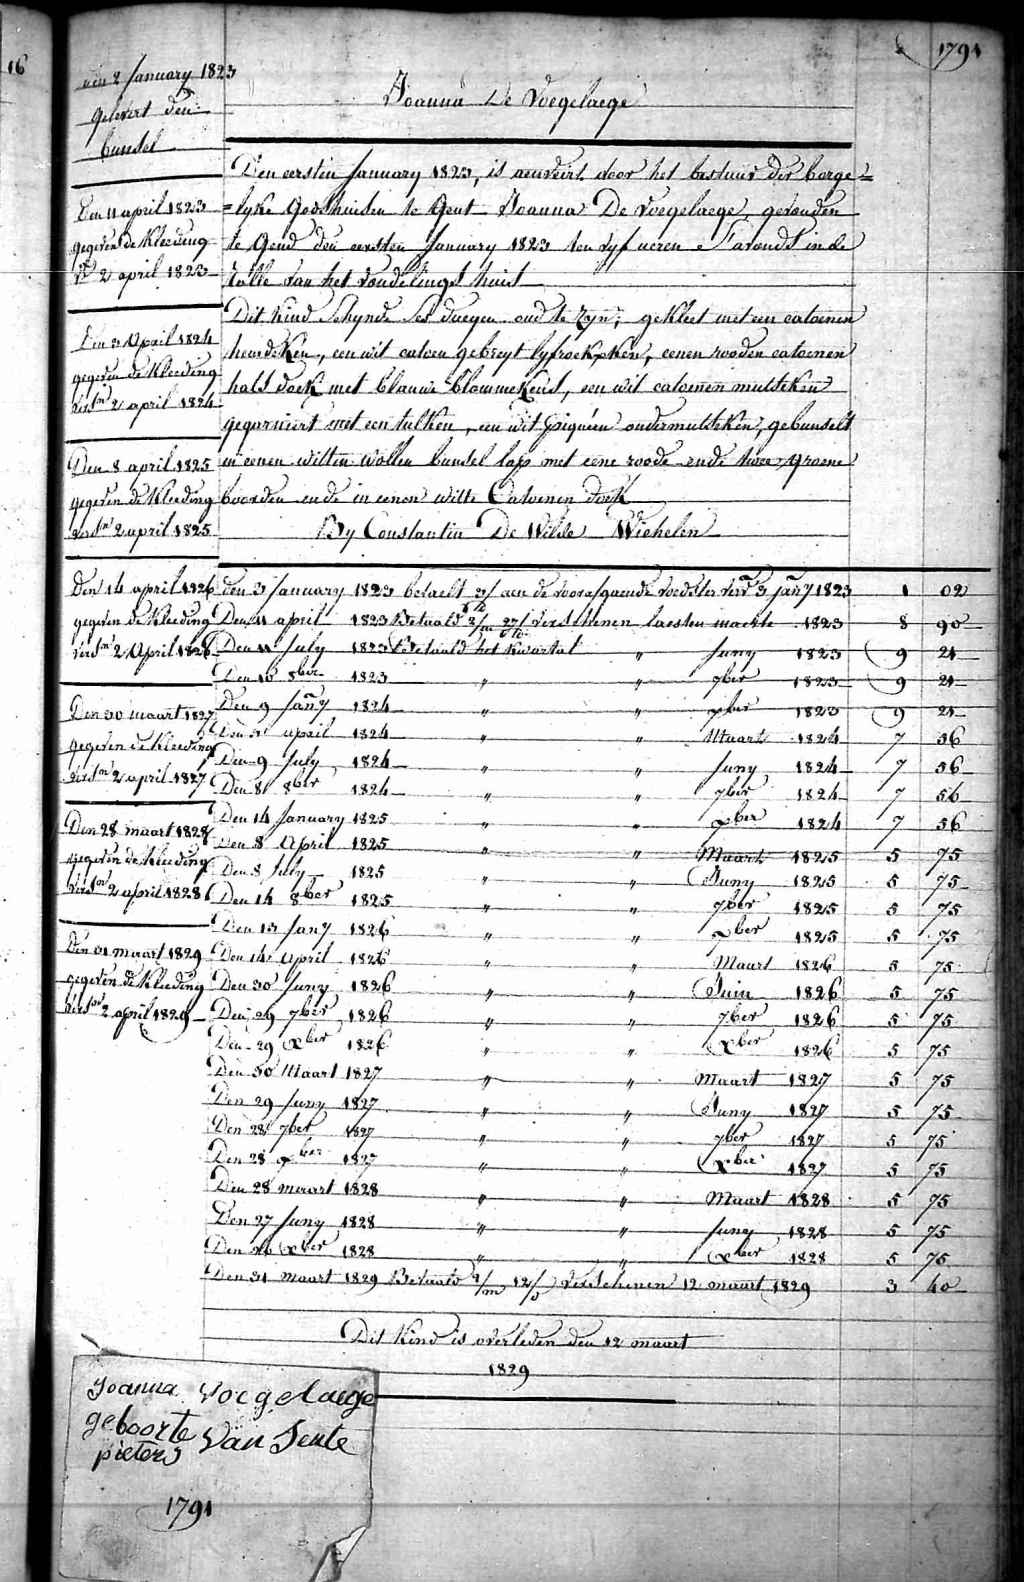 16
1791
den 2 January 1823
gelevert den
bunsel
Joanna De Voegelaege
Den eersten January 1823, is aenveirt door het bestuur der borge=
=lyke Godshuisen te Gent Joanna De Voegelaege, gevonden
te Gend den eersten January 1823 ten vyf ueren s'avonds in de
rolle van het vondelings huis
Dit kind schynde ses daegen oud te zyn; gekleet met een catoenen
hemdeken, een wit catoen gebreyt lyfrokxken, eenen rooden catoenen
hals doek met blauwe blommekens, een wit catoenen mutsken
gegarniert met een tulken, een wit piquéen ondermutsken, gebunselt
in eenen witten wollen bunsel lap met eene roode ende twee groene
boorden ende in eenen witte Catoenen doek
By Constantin De Wilde Wichelen
Den 11 april 1823
gegeven de Kleeding
vs 2 april 1823
Den 3 April 1824
gegeven de Kleeding
versn 2 april 1824
Den 8 april 1825
gegeven de Kleeding
versn 2 april 1825
Den 14 april 1826
gegeven de Kleeding
versn 2 April 1826
Den 30 maart 1827
gegeven de Kleeding
versn 2 april 1827
Den 28 maart 1828
gegeven de Kleeding
versn 2 april 1828
Den 31 maart 1829
gegeven de Kleeding
versn 2 april 1829
den 3 January 1823 betaelt aen de voorasgaende voedster vers 3 jany 1823 1 02
Den 11 april 1823 Betaald 2/m 27/ verschenen laesten maerte 1823 8 90
Den 11 July 1823 Betaald het Kwartal " Juny 1823 9 21
Den 10 8ber 1823 " " 7ber 1823 9 21
Den 9 Jany 1824 " " xber 1823 9 21
Den april 1824 " " Maart 1824 7 56
Den 9 July 1824 " " Juny 1824 7 56
Den 8 8ber 1824 " " 7ber 1824 7 56
Den 14 January 1825 " " xber 1824 7 56
Den 8 April 1825 " " Maart 1825 5 75
Den 8 July 1825 " " Juny 1825 5 75
Den 14 8ber 1825 " " 7ber 1825 5 75
Den 13 Jany 1826 " " xber 1825 5 75
Den 14 April 1826 " " Maart 1826 5 75
Den 30 Juny 1826 " " Juin 1826 5 75
Den 29 7ber 1826 " " 7ber 1826 5 75
Den 29 Xber 1826 " " Xber 1826 5 75
Den 30 Maart 1827 " " Maart 1827 5 75
Den 29 Juny 1827 " " Juny 1827 5 75
Den 28 7ber 1827 " " 7ber 1827 5 75
Den 28 xber 1827 " " Xber 1827 5 75
Den 28 maart 1828 " " Maart 1828 5 75
Den 27 Juny 1828 " " Juny 1828 5 75
Den 26 Xber 1828 " " Xber 1828 5 75
Den 31 maart 1829 Betaald 2/m 12/ verschenen 12 maart 1829 3 40
Dit Kind is overleden den 12 maart
1829
Joanna Voegelaege
geboorte Van Sente
pieters
1791